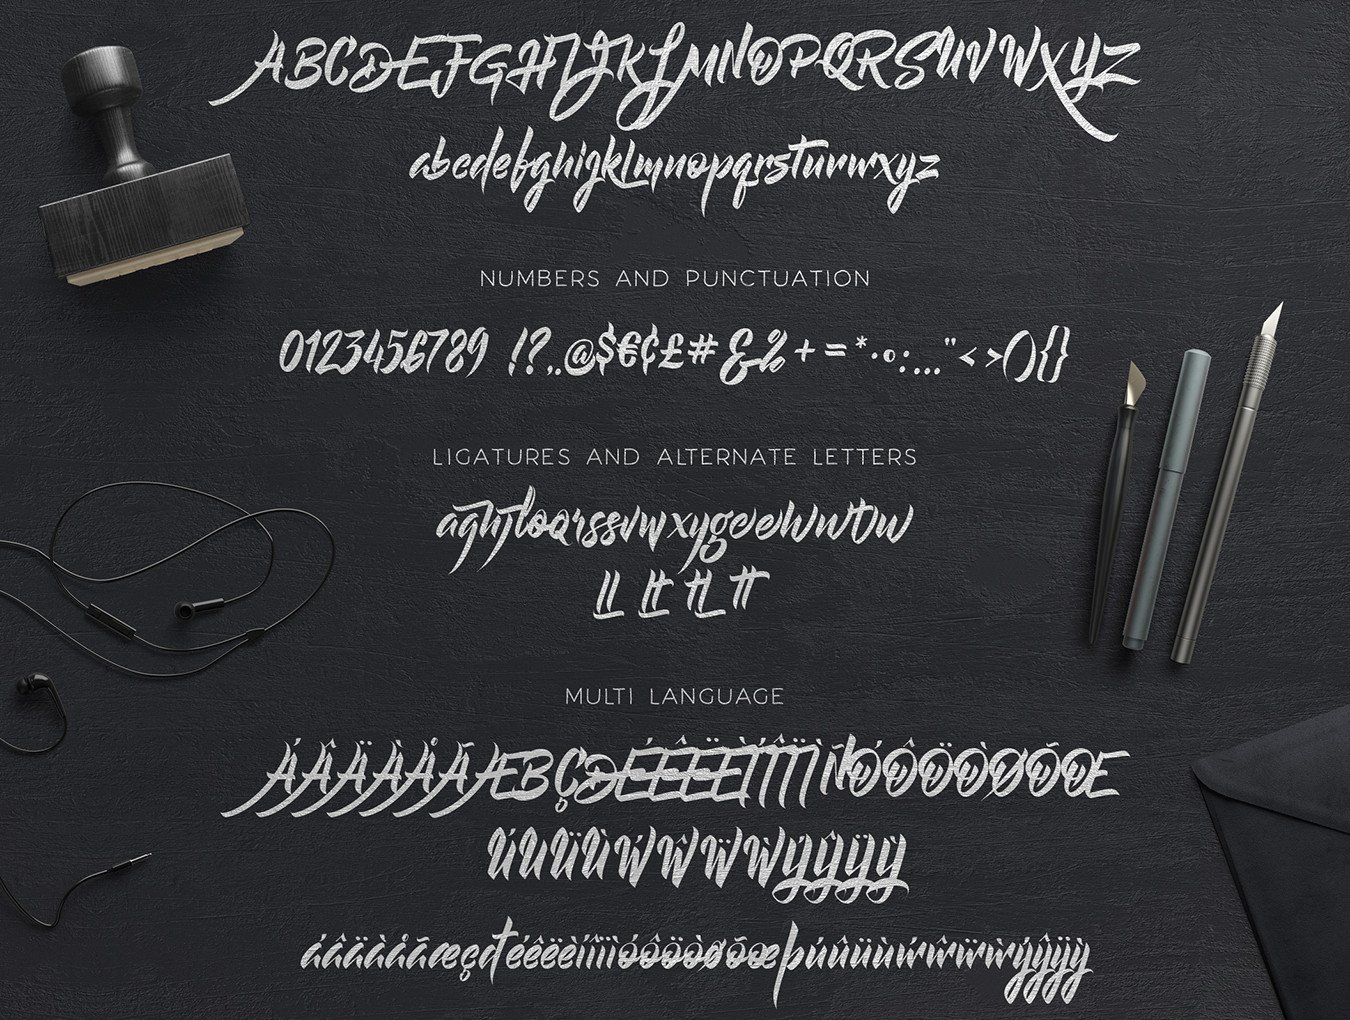 ABCDEFGHIJKLMNOPQRSTUVWXYZ
abcdefghijklmnopqrstuvwxyz
NUMBERS AND PUNCTUATION
0123456789 !?,.@$€¢£#&%+=*·°:..."<>(){}
LIGATURES AND ALTERNATE LETTERS
ll lt tl tt
MULTI LANGUAGE
ÁÂÄÀÅÃÆBÇĐÉÊËÈÍÎÏÌÑÓÔÖÒØÕŒ
ÚÛÜÙẂŴẄẀÝŶŸỲ
áâäàåãæçđéêëèíîïìóôöòøõœþúûüùẃŵẅẁýŷÿỳ